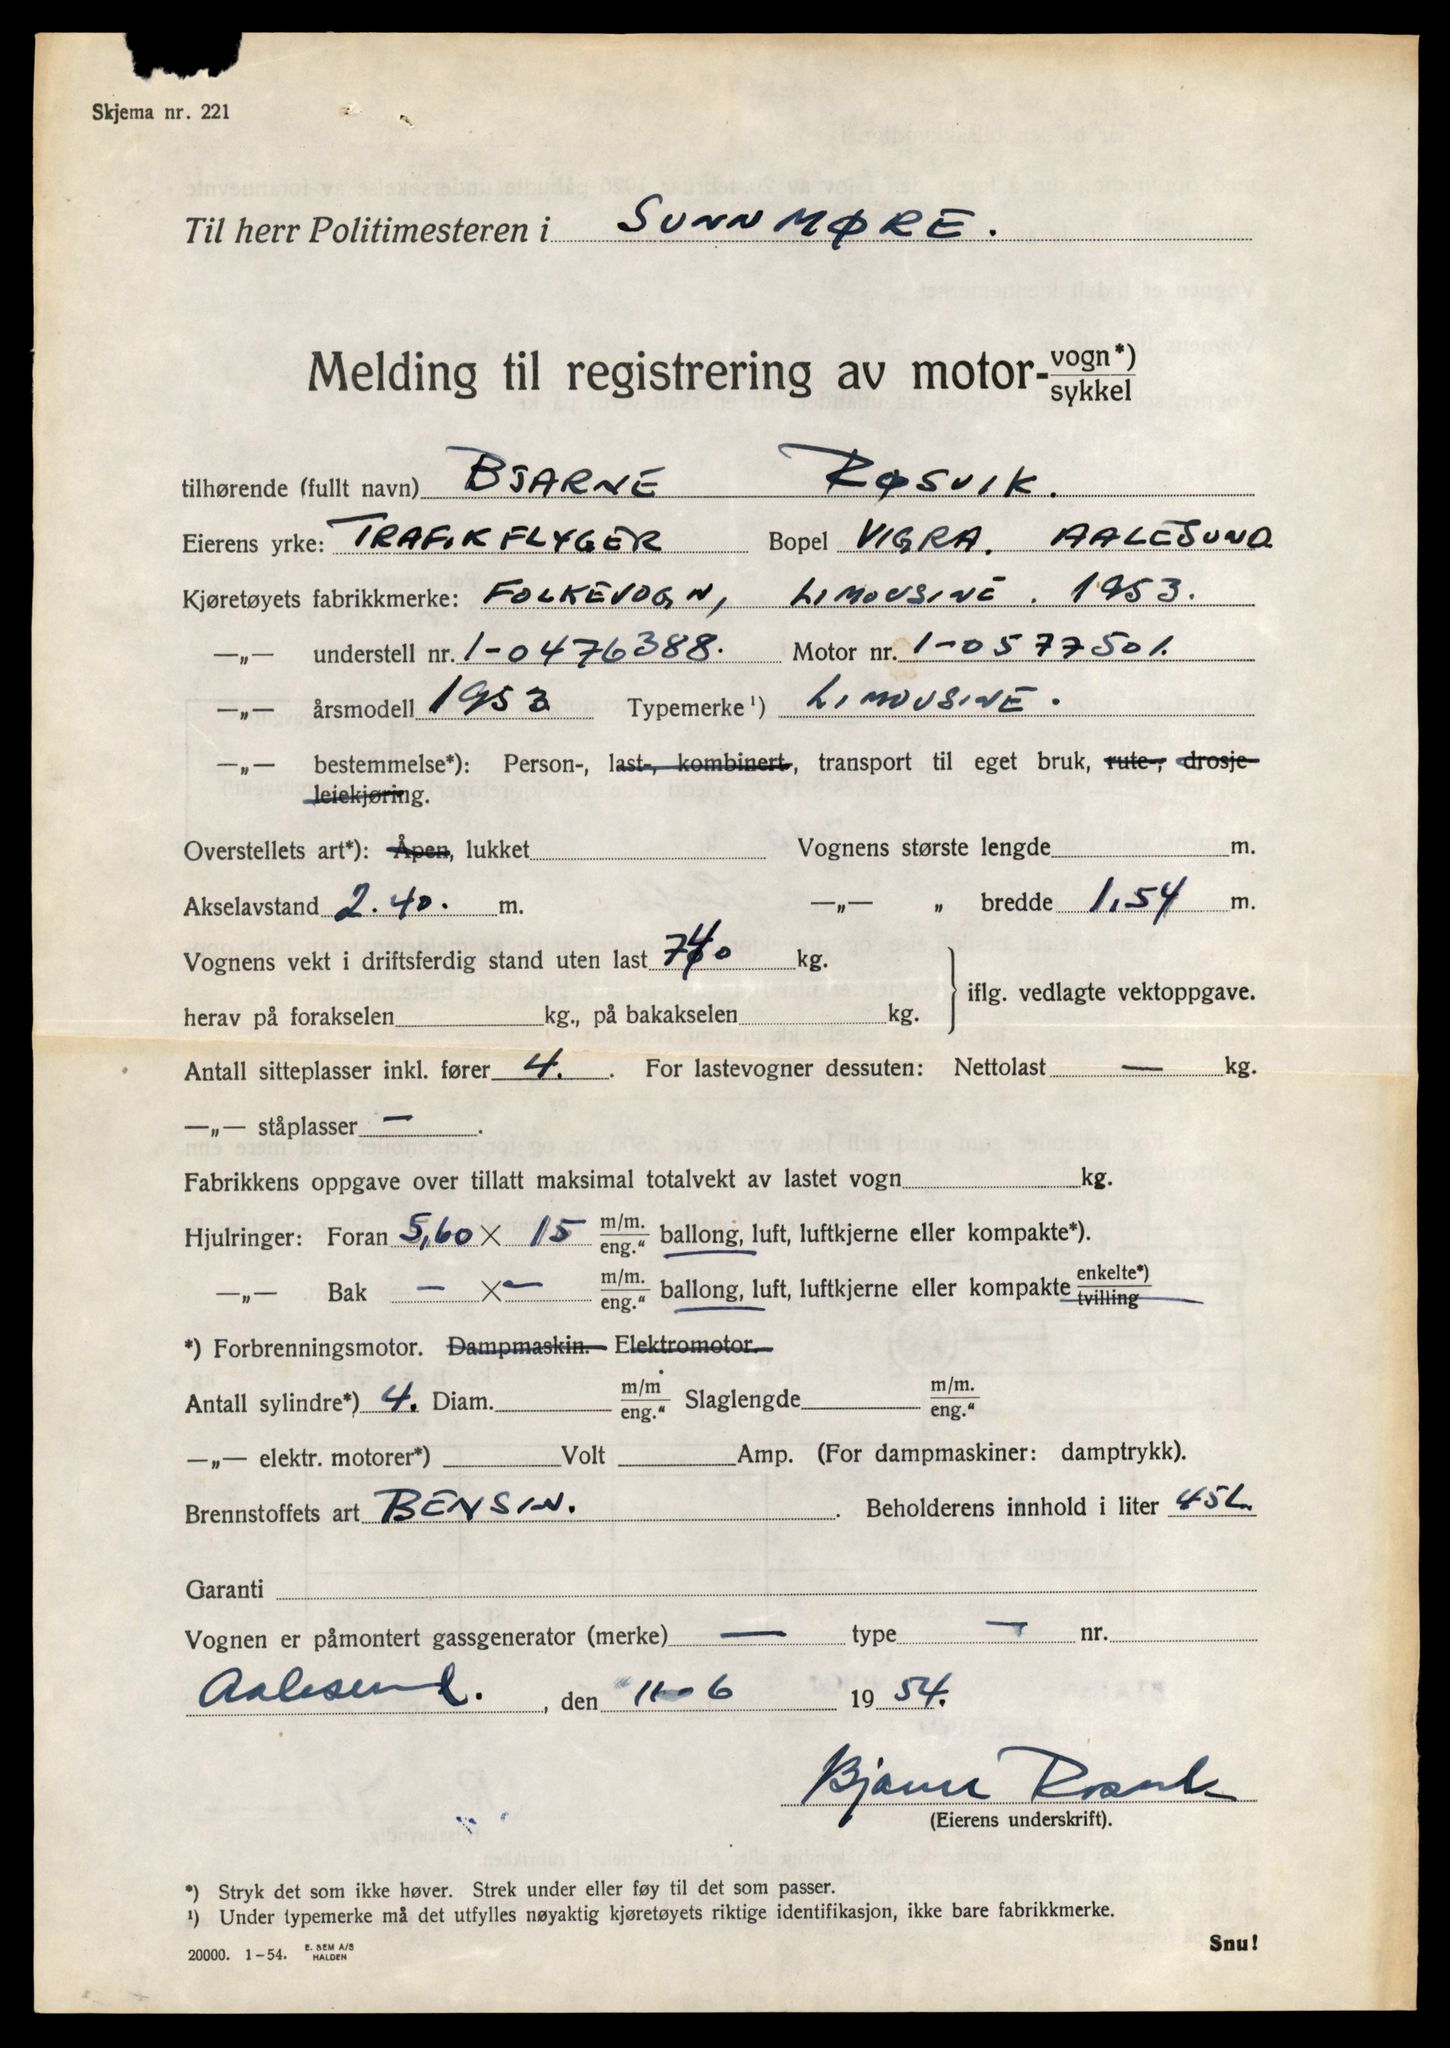 Skjema nr. 221
Til herr Politimesteren i SUNNMØRE.
Melding til registrering av motor-vogn*)
sykkel
tilhørende (fullt navn) BJARNE RØSVIK.
Eierens yrke: TRAFIKFLYGER Bopel VIGRA. AALESUND
Kjøretøyets fabrikkmerke: FOLKEVOGN, LIMOUSINE. 1953.
—„— understell nr. 1-0476388. Motor nr. 1-0577501.
—„— årsmodell 1953 Typemerke¹) LIMOUSINE.
—„— bestemmelse*): Person-, last-, kombinert-, transport til eget bruk, rute-, drosje-
leiekjøring.
Overstellets art*): Åpen, lukket Vognens største lengde m.
Akselavstand 2.40. m. —„— „ bredde 1,54 m.
Vognens vekt i driftsferdig stand uten last 740 kg.
iflg. vedlagte vektoppgave.
herav på forakselen kg., på bakakselen kg.
Antall sitteplasser inkl. fører 4. . For lastevogner dessuten: Nettolast — kg.
—„— ståplasser — .
Fabrikkens oppgave over tillatt maksimal totalvekt av lastet vogn kg.
Hjulringer: Foran 5,60 × 15 m/m. eng.“ ballong, luft, luftkjerne eller kompakte*).
—„— Bak — × — m/m. eng.“ ballong, luft, luftkjerne eller kompakte enkelte*) tvilling
*) Forbrenningsmotor. Dampmaskin. Elektromotor.
Antall sylindre*) 4. Diam. m/m eng.“ Slaglengde m/m. eng.“
—„— elektr. motorer*) Volt Amp. (For dampmaskiner: damptrykk).
Brennstoffets art BENSIN. . Beholderens innhold i liter 45 L.
Garanti
Vognen er påmontert gassgenerator (merke) — type — nr.
Aalesund. , den 11-6 19 54.
Bjarne Røsvik
(Eierens underskrift).
*) Stryk det som ikke høver. Strek under eller føy til det som passer.
¹) Under typemerke må det utfylles nøyaktig kjøretøyets riktige identifikasjon, ikke bare fabrikkmerke.
20000. 1-54. E. SEM A/S HALDEN
Snu!